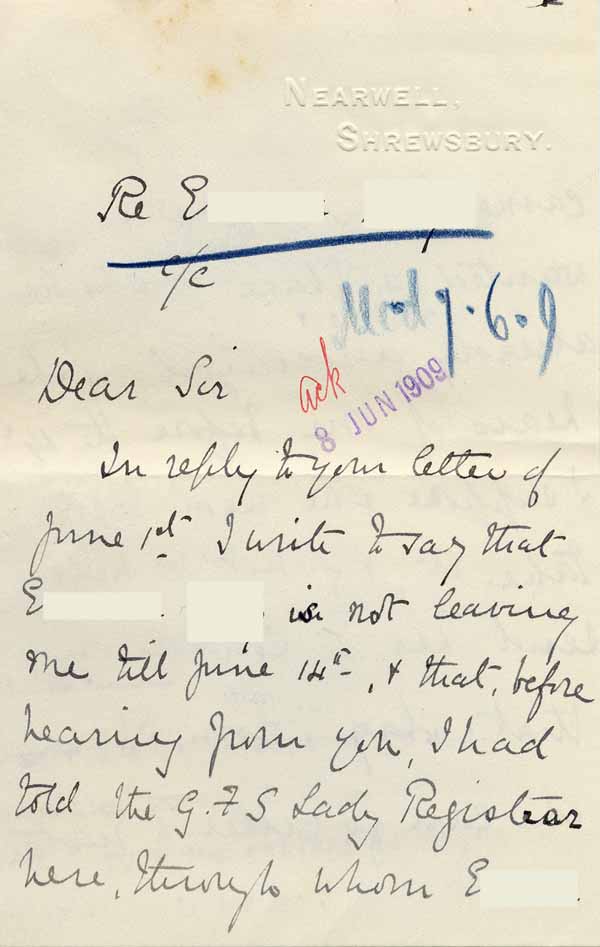 NEARWELL,
SHREWSBURY.
Re E
c/c
7.6.9
Dear Sir
ack
8 JUN 1909
In reply to your letter of
June 1st I write to say that
E is not leaving
me till June 14th, & that, before
hearing from you, I had
told the G.F.S Lady Registrar
here, through whom E